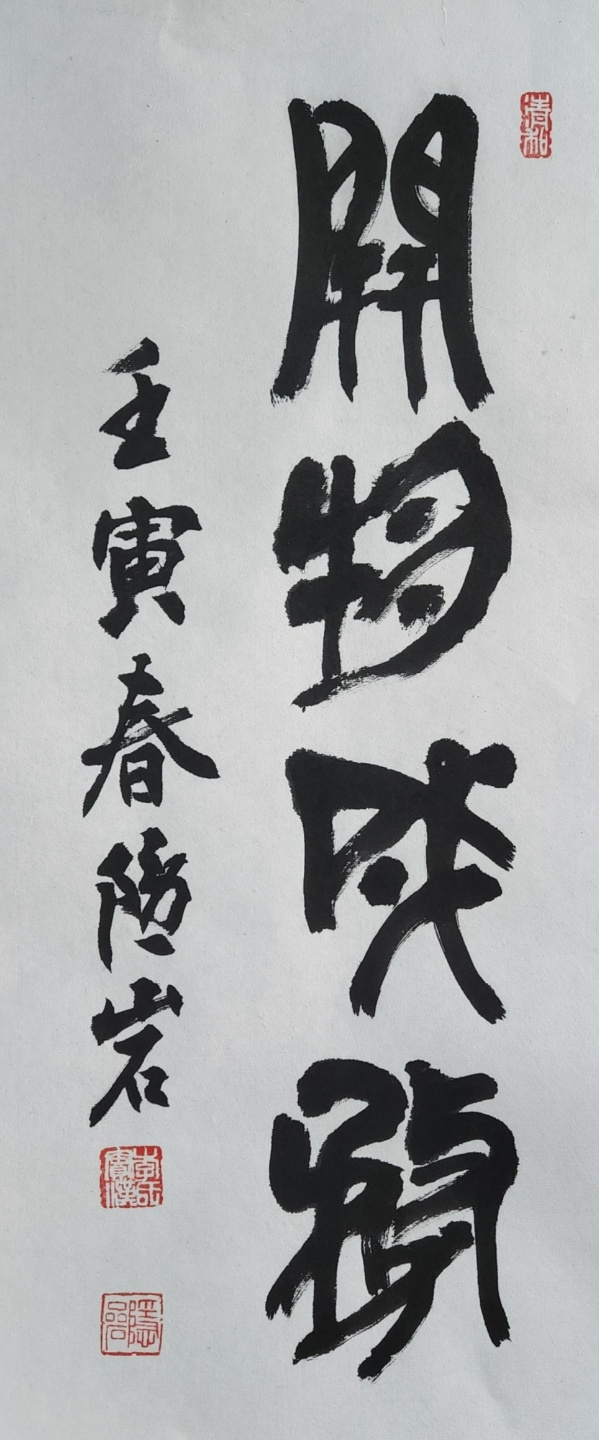 開物成務
壬寅春隐岩